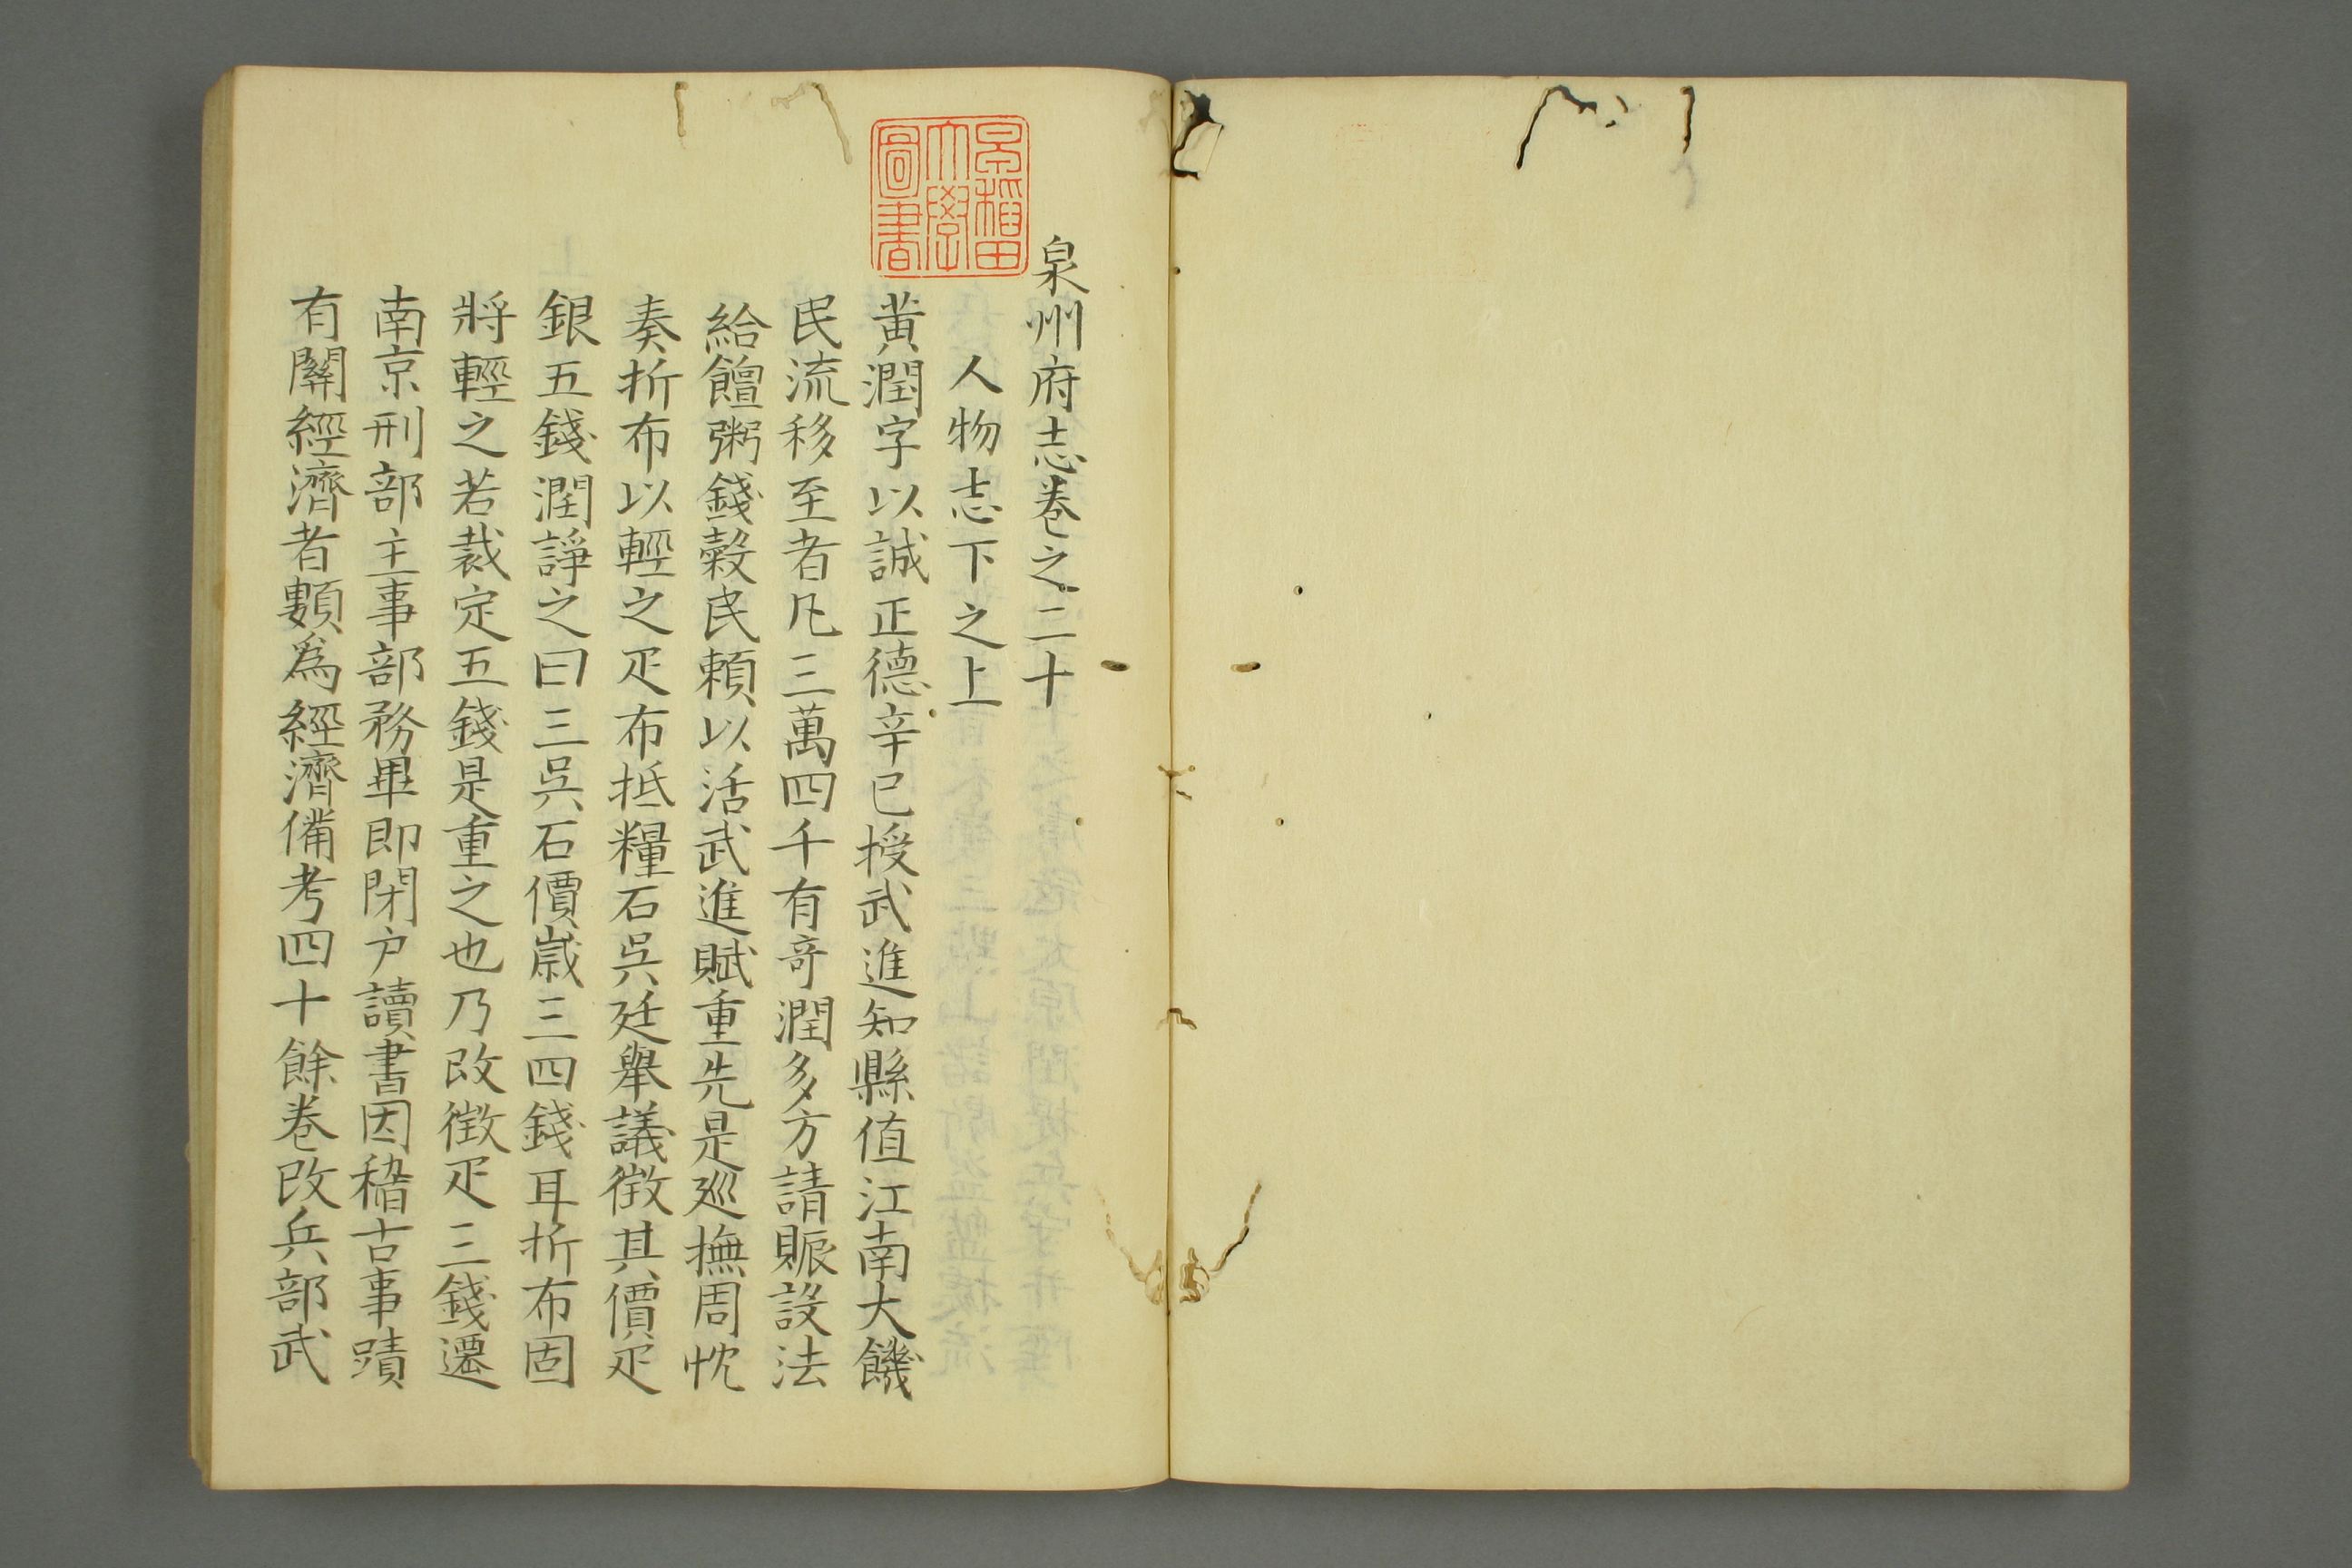 泉州府志卷之二十
人物志下之上
黄潤字以誠正德辛巳授武進知縣值江南大饑
民流移至者凡三萬四千有奇潤多方請賑設法
給饘粥錢穀民賴以活武進賦重先是廵撫周忱
奏折布以輕之疋布抵糧石吳廷舉議徵其價疋
銀五錢潤諍之曰三吳石價嵗三四錢耳折布固
將輕之若裁定五錢是重之也乃改徵疋三錢遷
南京刑部主事部務畢即閉户讀書因稽古事蹟
有關經濟者類爲經濟備考四十餘卷改兵部武
早稲田
大學
圖書